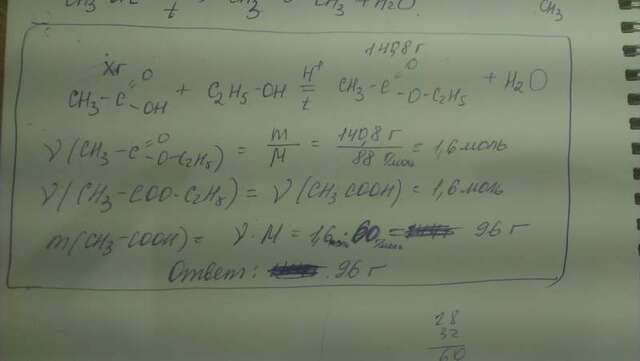 t CH3 + H2O CH3
140,8 г
Xг O O
CH3-C + C2H5-OH H+ ⇌ t CH3-C + H2O
OH O-C2H5
ν(CH3-C O O-C2H5) = m/M = 140,8 г / 88 г/моль = 1,6 моль
ν(CH3-COO-C2H5) = ν(CH3COOH) = 1,6 моль
m(CH3-COOH) = ν·M = 1,6 моль·60 г/моль = 96 г
Ответ: 96 г
28
32
60